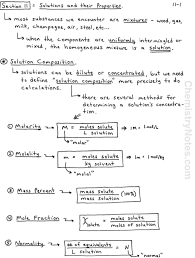 Section 11 Solutions and their Properties. 11-1
• most substances we encounter are mixtures - wood, gas,
milk, champagne, air, steel, etc...
↳ when the components are uniformly intermingled or
mixed, the homogeneous mixture is a solution.
Solution Composition.
↳ solutions can be dilute or concentrated, but we need
to define "solution composition" more precisely to do
calculations.
↳ there are several methods for
determining a solution's concentra-
tion.
① Molarity M = moles solute / L solution 1M = 1 mol/L
"molar"
② Molality m = moles solute / kg solvent
"molal"
③ Mass Percent mass solute / mass solution (100%)
④ Mole Fraction χ solute = moles solute / moles of solution
⑤ Normality # of equivalents / L solution = N
"normal"
ChemistryNotes.com